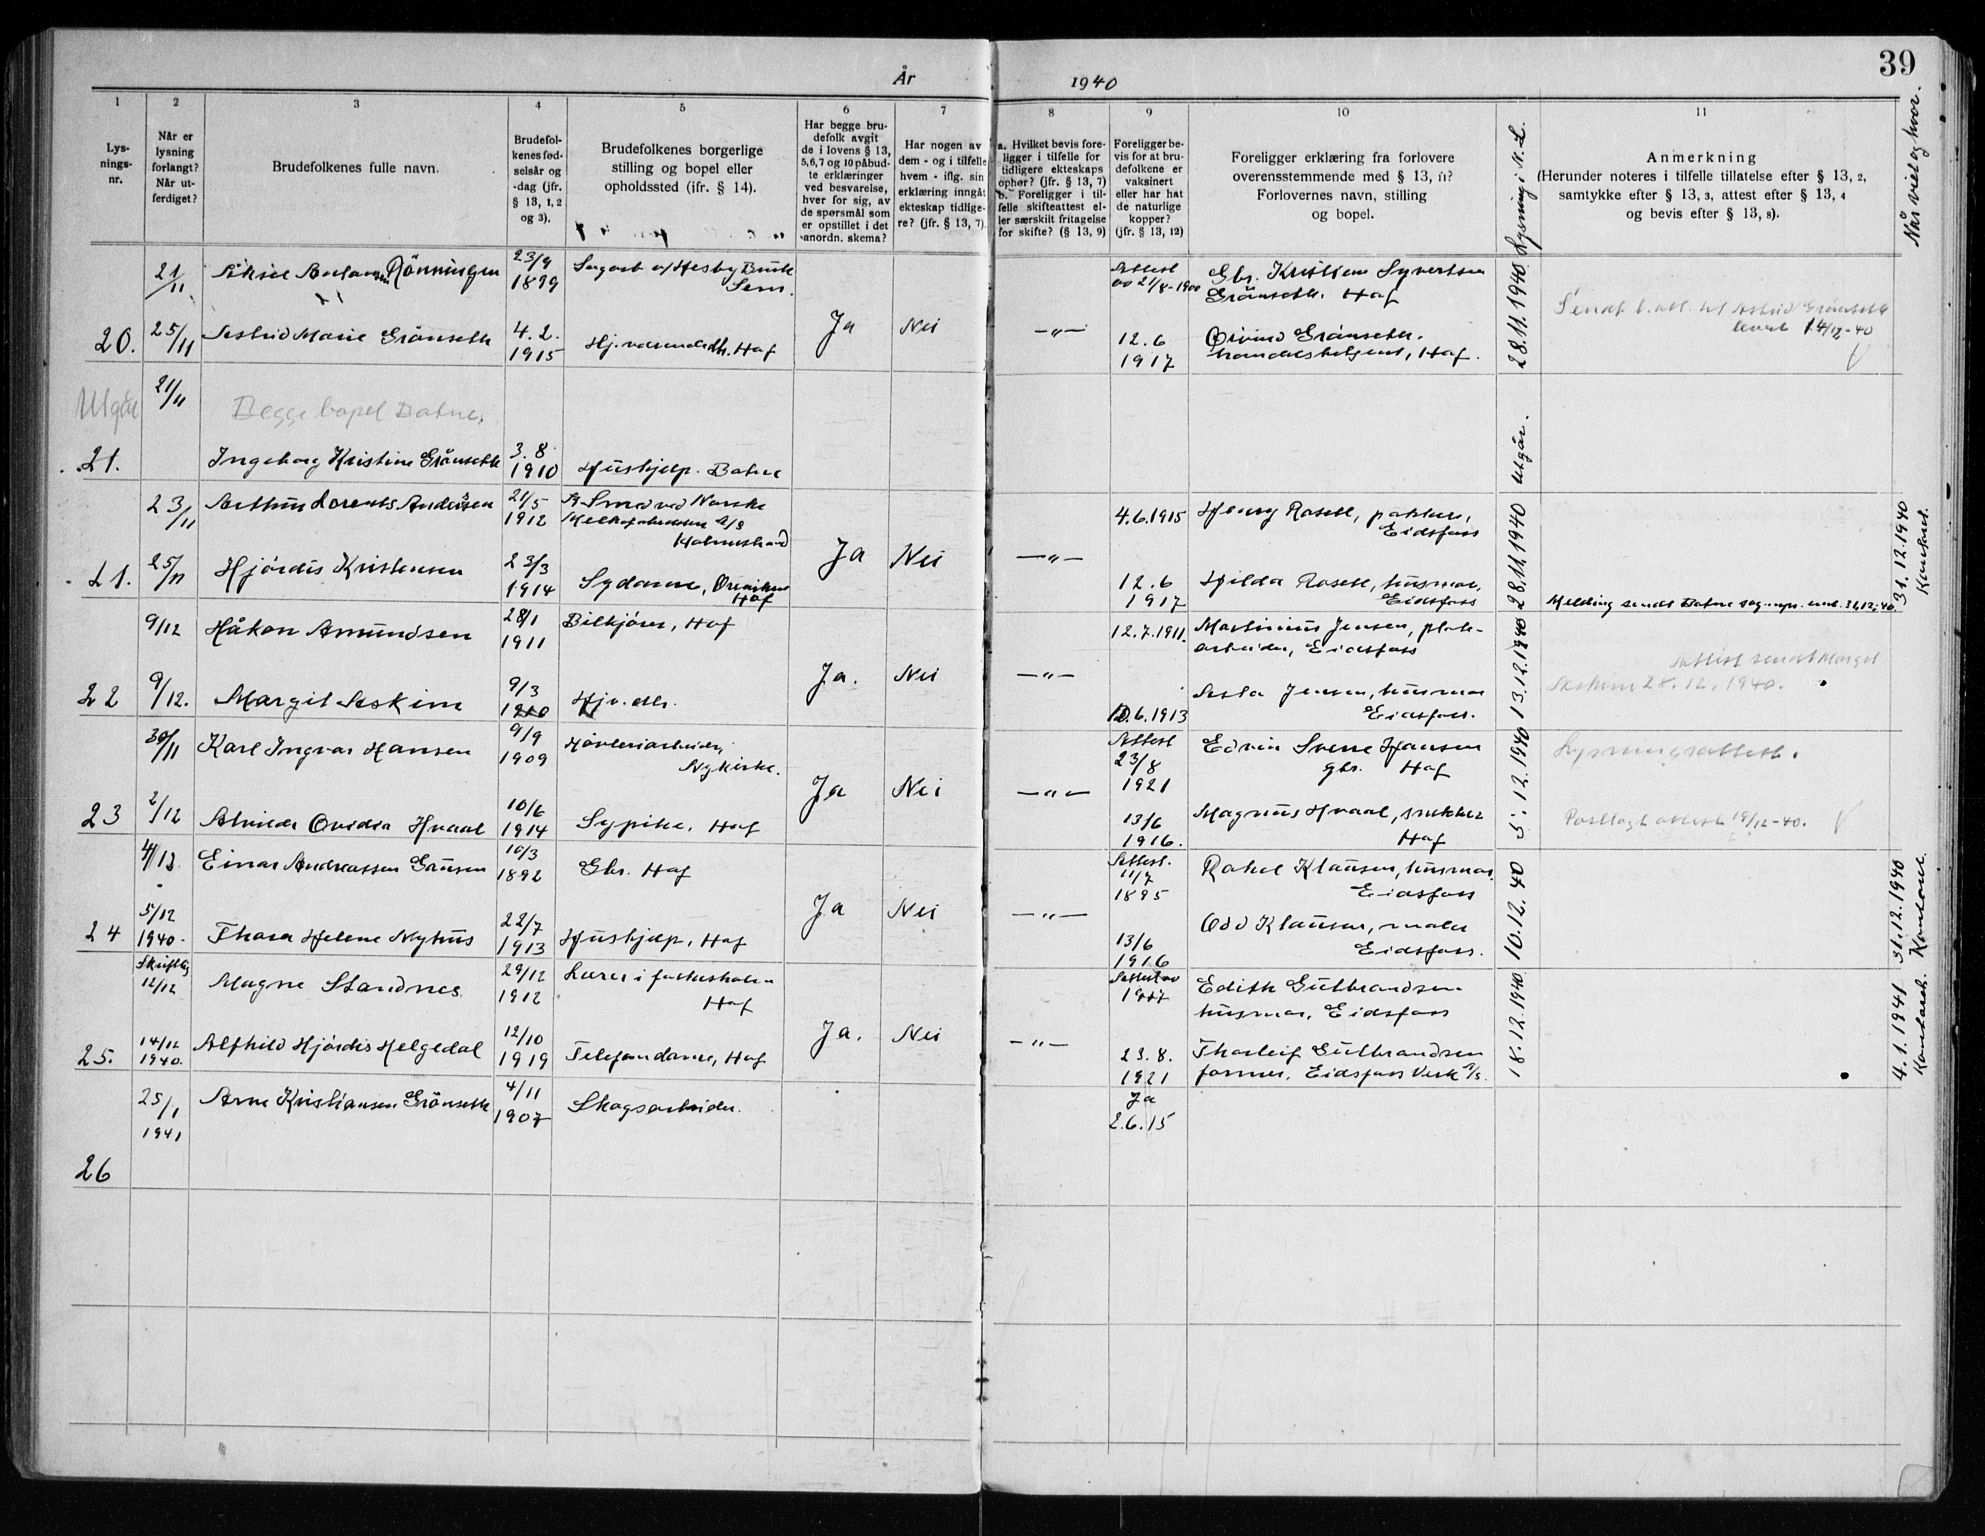 39
År 1940
1 2 3 4 5 6 7 8 9 10 11
Lys-
nings-
nr.
Når er
lysning
forlangt?
Når ut-
ferdiget?
Brudefolkenes fulle navn.
Brudefol-
kenes fød-
selsår og
-dag (jfr.
§ 13, 1, 2
og 3).
Brudefolkenes borgerlige
stilling og bopel eller
opholdssted (ifr. § 14).
Har begge bru-
defolk avgit
de i lovens § 13,
5,6,7 og 10 påbud-
te erklæringer
ved besvarelse,
hver for sig, av
de spørsmål som
er opstillet i det
anordn. skema?
Har nogen av
dem - og i tilfelle
hvem - iflg. sin
erklæring inngåt
ekteskap tidlige-
re? (jfr. § 13, 7).
a. Hvilket bevis fore-
ligger i tilfelle for
tidligere ekteskaps
ophør? (jfr. § 13, 7)
b. Foreligger i til-
felle skifteattest el-
ler særskilt fritagelse
for skifte? (§ 13, 9)
Foreligger be-
vis for at bru-
defolkene er
vaksinert
eller har hat
de naturlige
kopper?
(jfr. § 13, 12)
Foreligger erklæring fra forlovere
overensstemmende med § 13, 11?
Forlovernes navn, stilling
og bopel.
Lysning i N. L.
Anmerkning
(Herunder noteres i tilfelle tillatelse efter § 13, 2,
samtykke efter § 13, 3, attest efter § 13, 4
og bevis efter § 13, 8).
Når viet og hvor.
21/11 Rönningen 23/9 1899 Hesby Bruk Sem.
Attest 21/8-1900 Gbr. Kristian Syvertsen
Grönseth. Hof
20. 25/11 Astrid Marie Grönseth 4.2. 1915 Hj. værende Hof Ja Nei —"— 12.6 1917 Öivind Grönseth.
handelsbetjent, Hof.
28.11.1940
Sendt Astrid Grönseth
14/12-40
Utgår 21/11 Begge bopel Botne.
21. Ingeborg Kristine Grönseth 3.8. 1910 Hushjelp. Botne
Utgår.
23/11 Arthur Lorents Andersen 21/5 1912 Smed ved Norske
A/S
Holmestrand
4.6.1915 Henry Roseth, pakker,
Eidsfoss
21. 25/11 Hjördis Kristensen 23/3 1914 Sydame, Hof Ja Nei —"— 12.6 1917 Hilda Roseth, husmor,
Eidsfoss
28.11.1940
Melding sendt Botne
31.12.1940
Kontoret.
9/12 Håkon Amundsen 28/1 1911 Bilkjörer, Hof 12.7.1911. Martinius Jensen, plate-
arbeider, Eidsfoss
22 9/12. Margit Askim 9/3 1910 Hjv. dtr. Ja. Nei —"— 10.6.1913 Asta Jensen, husmor
Eidsfoss.
13.12.1940
Attest sendt Margit
Askim 28.12.1940.
30/11 Karl Ingvar Hansen 9/9 1909 Hövleriarbeider,
Nykirke.
Attest 23/8 1921 Edvin Sverre Hansen
gbr. Hof
23 2/12 Alvilde Ovidia Hvaal 10/6 1914 Sypike, Hof Ja Nei —"— 13/6 1916. Magnus Hvaal, snekker
Hof
5.12.1940
Lysningsattest.
Postlagt attest 19/12-40.
4/12 Einar Andreassen Grönsen 10/3 1892 Gbr. Hof Attest. 11/7 1895 Rakel Klausen, husmor.
Eidsfoss
24 5/12 1940. Thora Helene Nyhus 22/7 1913 Hushjelp, Hof Ja Nei —"— 13/6 1916 Odd Klausen, maler
Eidsfoss.
10.12.40
31.12.1940
Kontoret.
Skriftlig 12/12 Magne Standnes 29/12 1912 Lærer i folkeskolen
Hof
1917 Edith Gulbrandsen
husmor, Eidsfoss
25. 14/12 1940. Alfhild Hjördis Helgedal 12/10 1919 Telefondame, Hof Ja. Nei —"— 23.8. 1921 Thorleif Gulbrandsen
former, Eidsfoss Verk A/S.
18.12.1940
4.1.1941
Kontoret.
26 25/1 1941 Arne Kristiansen Grönseth 4/11 1907 Skogsarbeider. Ja
2.6.15